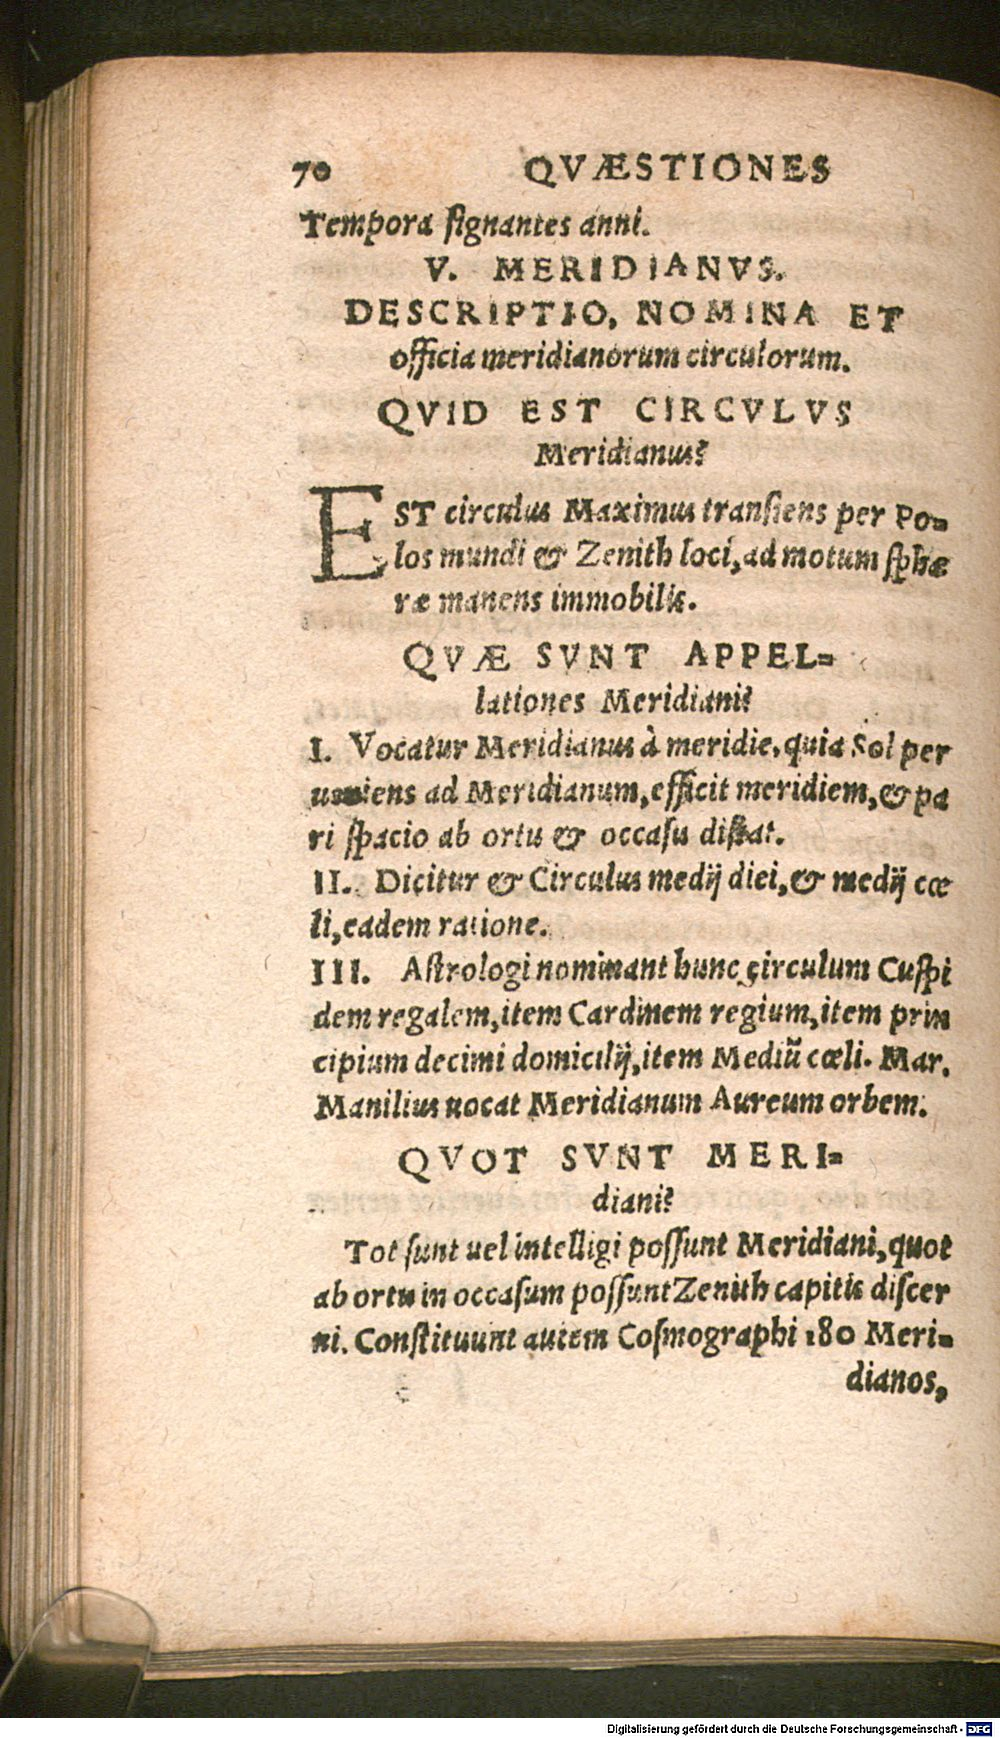 70 QVÆSTIONES
Tempora ſignantes anni.
V. MERIDIANVS.
DESCRIPTIO, NOMINA ET
officia meridianorum circulorum.
QVID EST CIRCVLVS
Meridianus?
EST circulus Maximus tranſiens per Po=
los mundi & Zenith loci, ad motum ſphæ
ræ manens immobilis.
QVÆ SVNT APPEL=
lationes Meridiani?
I. Vocatur Meridianus à meridie, quia Sol per
ueniens ad Meridianum, efficit meridiem, & pa
ri ſpacio ab ortu & occaſu diſtat.
II. Dicitur & Circulus medij diei, & medij cœ
li, eadem ratione.
III. Aſtrologi nominant hunc circulum Cuſpi
dem regalem, item Cardinem regium, item prin
cipium decimi domicilij, item Mediũ cœli. Mar.
Manilius uocat Meridianum Aureum orbem.
QVOT SVNT MERI=
diani?
Tot ſunt uel intelligi poſſunt Meridiani, quot
ab ortu in occaſum poſſunt Zenith capitis diſcer
ni. Conſtituunt autem Coſmographi 180 Meri=
dianos,
Digitalisierung gefördert durch die Deutsche Forschungsgemeinschaft - DFG